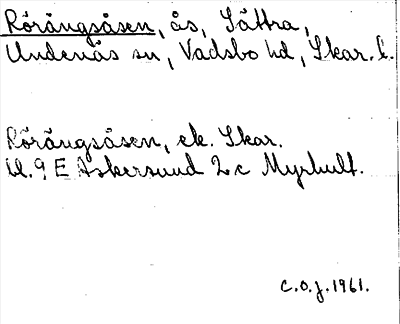 Rörängsåsen, ås, Sättra,
Undenäs sn, Vadsbo hd, Skar. l.
Rörängsåsen, ek. Skar.
bl. 9 E Askersund 2 c Myrhult.
C.O.J. 1961.